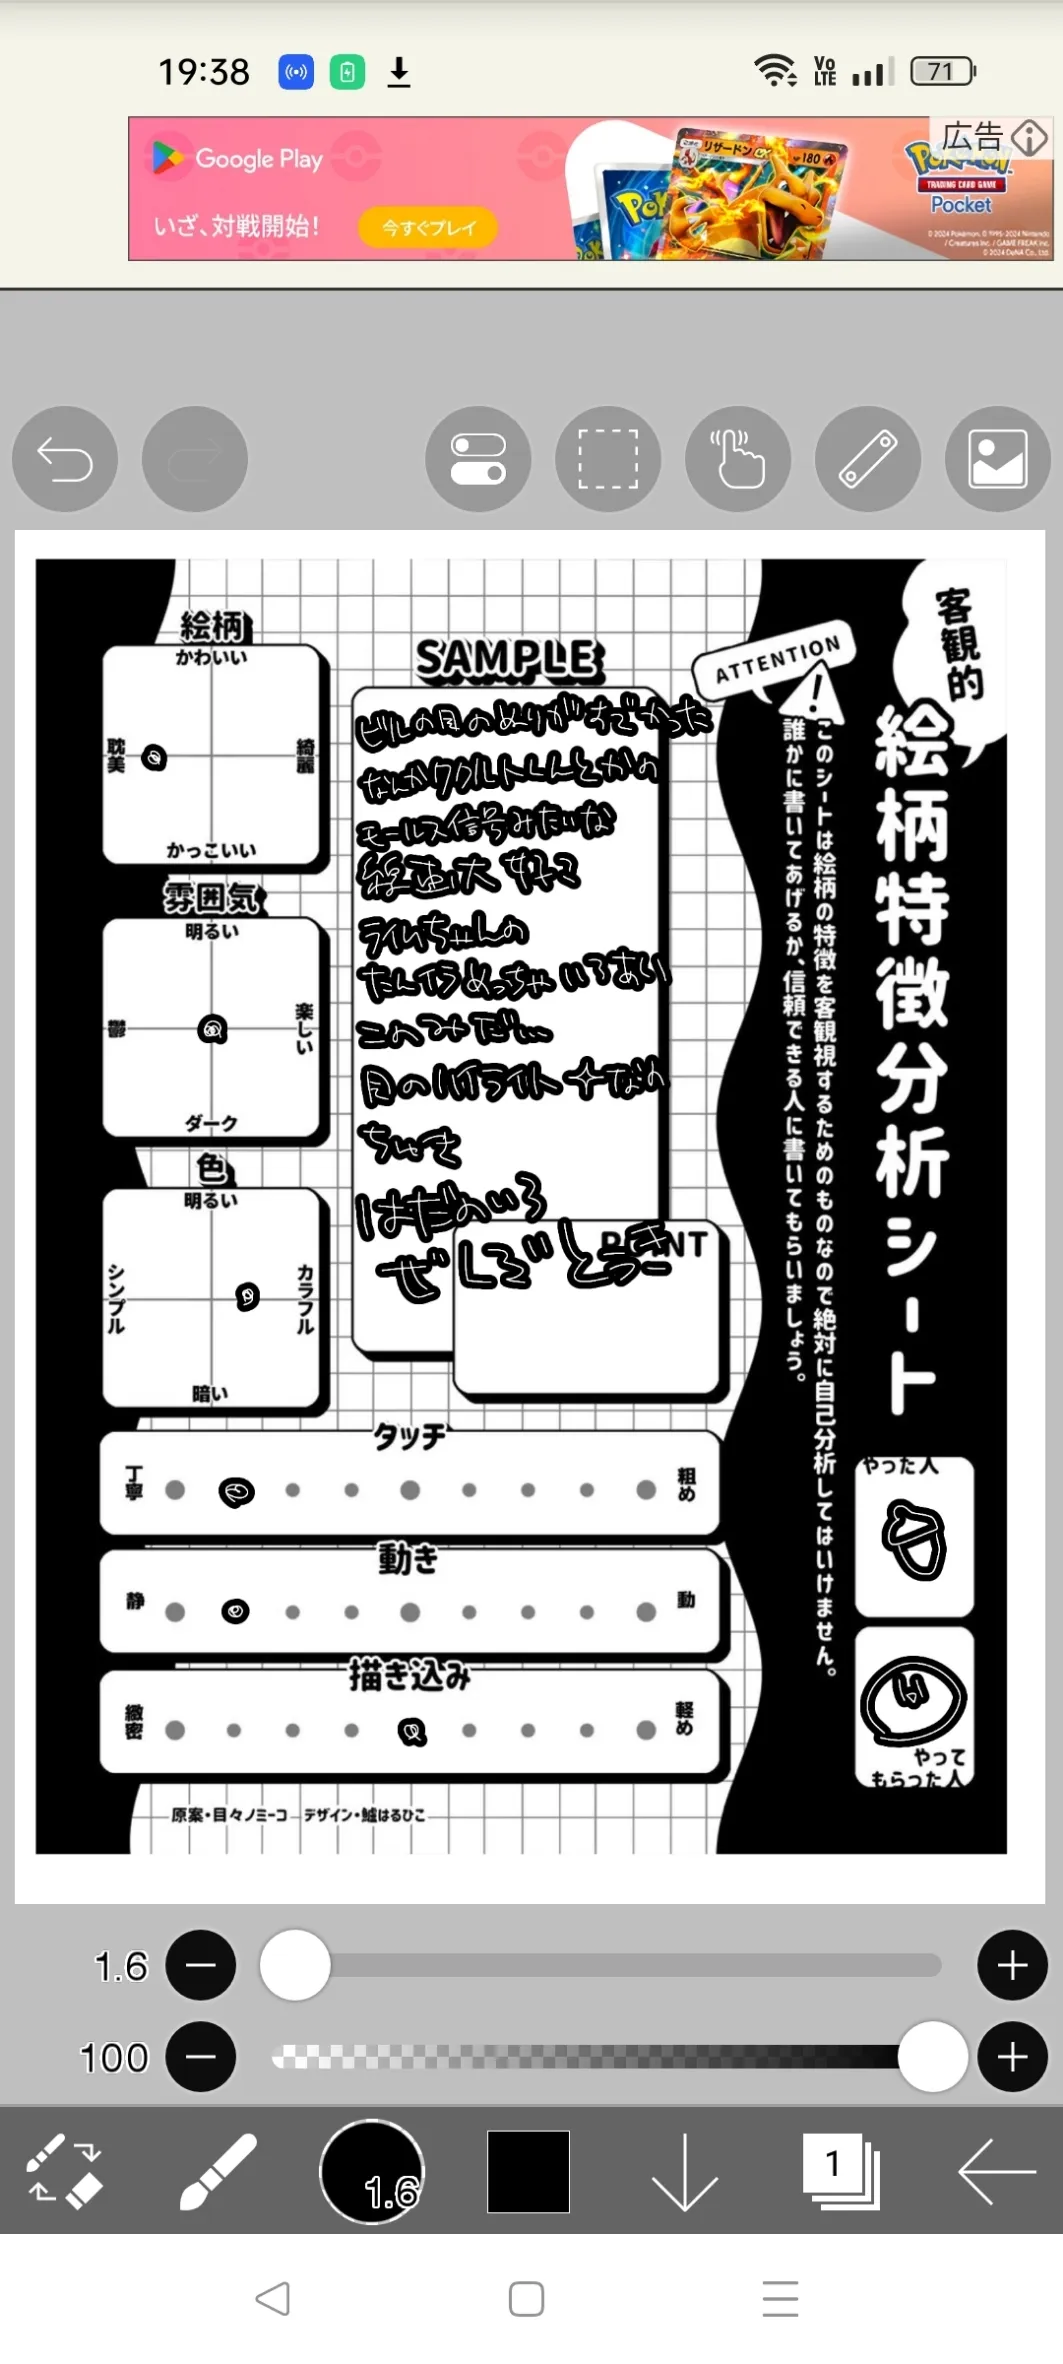 19:38
Vo LTE
71
Google Play
いざ、対戦開始！
今すぐプレイ
リザードンex
180
Pocket
広告
TRADING CARD GAME
Pocket
客観的
絵柄特徴分析シート
ATTENTION
!
このシートは絵柄の特徴を客観視するためのものなので絶対に自己分析してはいけません。
誰かに書いてあげるか、信頼できる人に書いてもらいましょう。
絵柄
かわいい
耽美
綺麗
かっこいい
雰囲気
明るい
鬱
楽しい
ダーク
色
明るい
シンプル
カラフル
暗い
SAMPLE
ビルの目のぬりがすでかった
なんかワクルトくんとかの
モールス信号みたいな
大好き
ライムちゃんの
たんイラめっちゃいろあい
このみだ…
目のハイライト✦なの
ちいさ
はだのいろ
ぜ
タッチ
丁寧
粗め
動き
静
動
描き込み
緻密
軽め
やった人
やって
もらった人
原案・目々ノミーコ デザイン・鱸はるひこ
1.6
100
1.6
1